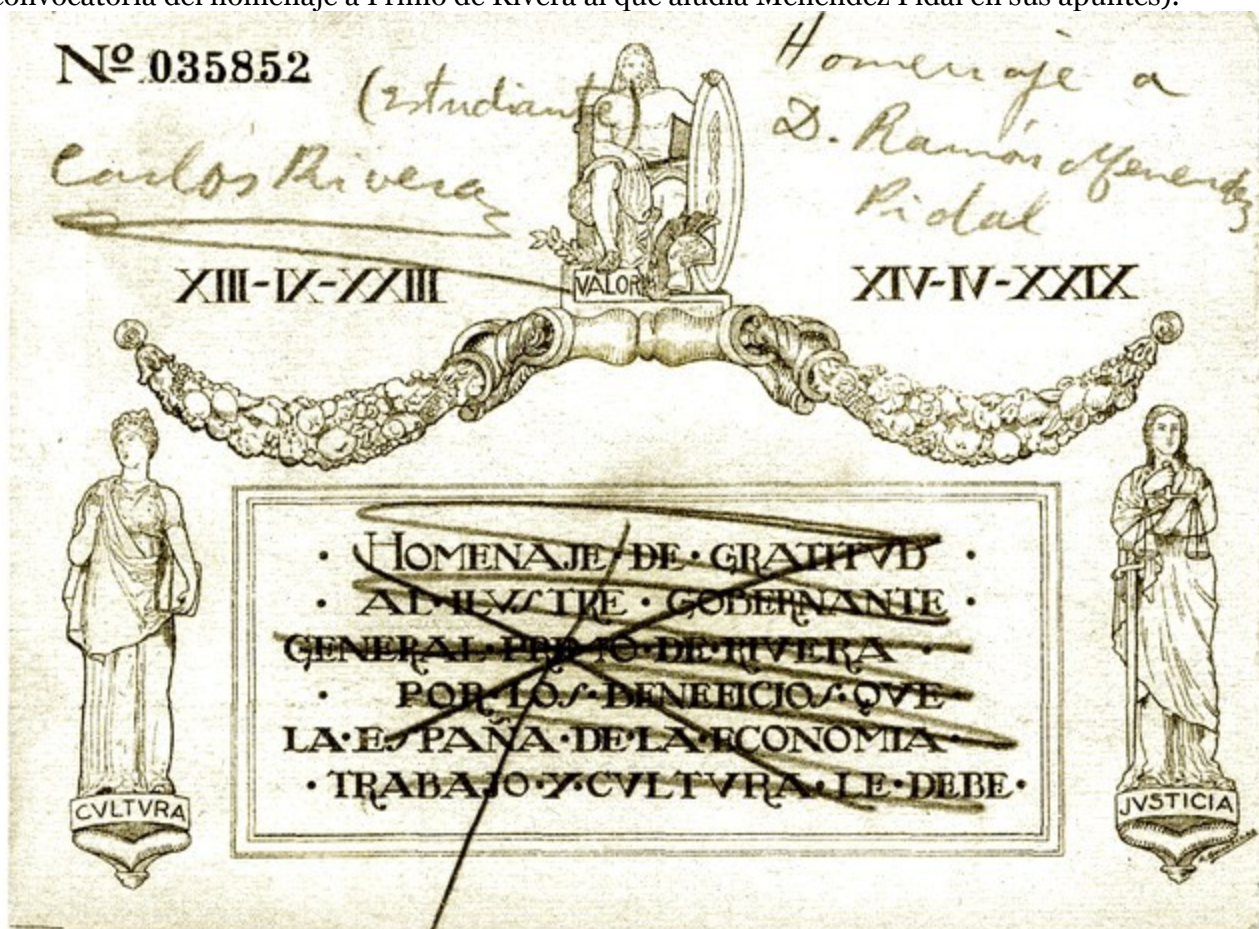 convocatoria del homenaje a Primo de Rivera al que aludía Menéndez Pidal en sus apuntes).
Nº 035852
(estudiante)
Carlos Rivera
Homenaje a
D. Ramón Menendez
Pidal
VALOR
XIII-IX-XXIII
XIV-IV-XXIX
· HOMENAJE · DE · GRATITVD ·
· AL · ILVSTRE · GOBERNANTE ·
GENERAL · PRIMO · DE · RIVERA ·
· POR · LOS · BENEFICIOS · QVE
LA · ESPAÑA · DE · LA · ECONOMIA ·
· TRABAJO · Y · CVLTVRA · LE · DEBE ·
CVLTVRA
JVSTICIA